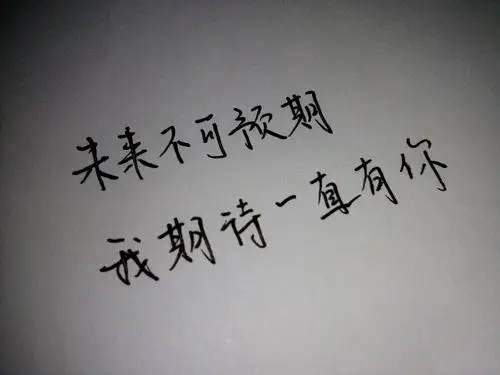 未来不可预期
我期待一直有你